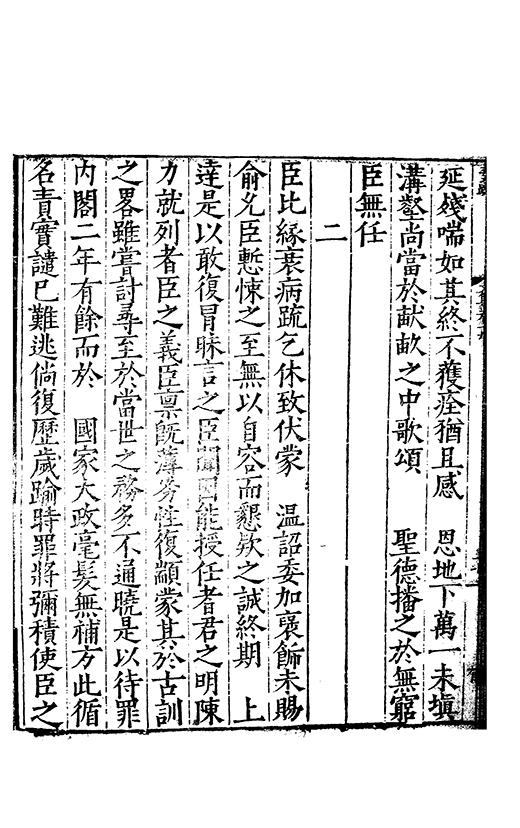 延殘喘如其終不獲痊猶且感　恩地下萬一未塡
溝壑尚當於畎畝之中歌頌　聖德播之於無窮
臣無任
二
臣比緣衰病疏乞休致伏蒙　温詔委加襃飾未賜
俞允臣慙悚之至無以自容而懇欵之誠終期　上
達是以敢復冒昧言之臣聞因能授任者君之明陳
力就列者臣之義臣禀旣薄劣性復顓蒙其於古訓
之畧雖嘗討尋至於當世之務多不通曉是以待罪
内閣二年有餘而於　國家大政毫髮無補方此循
名責實譴已難逃倘復歷歲踰時罪將彌積使臣之